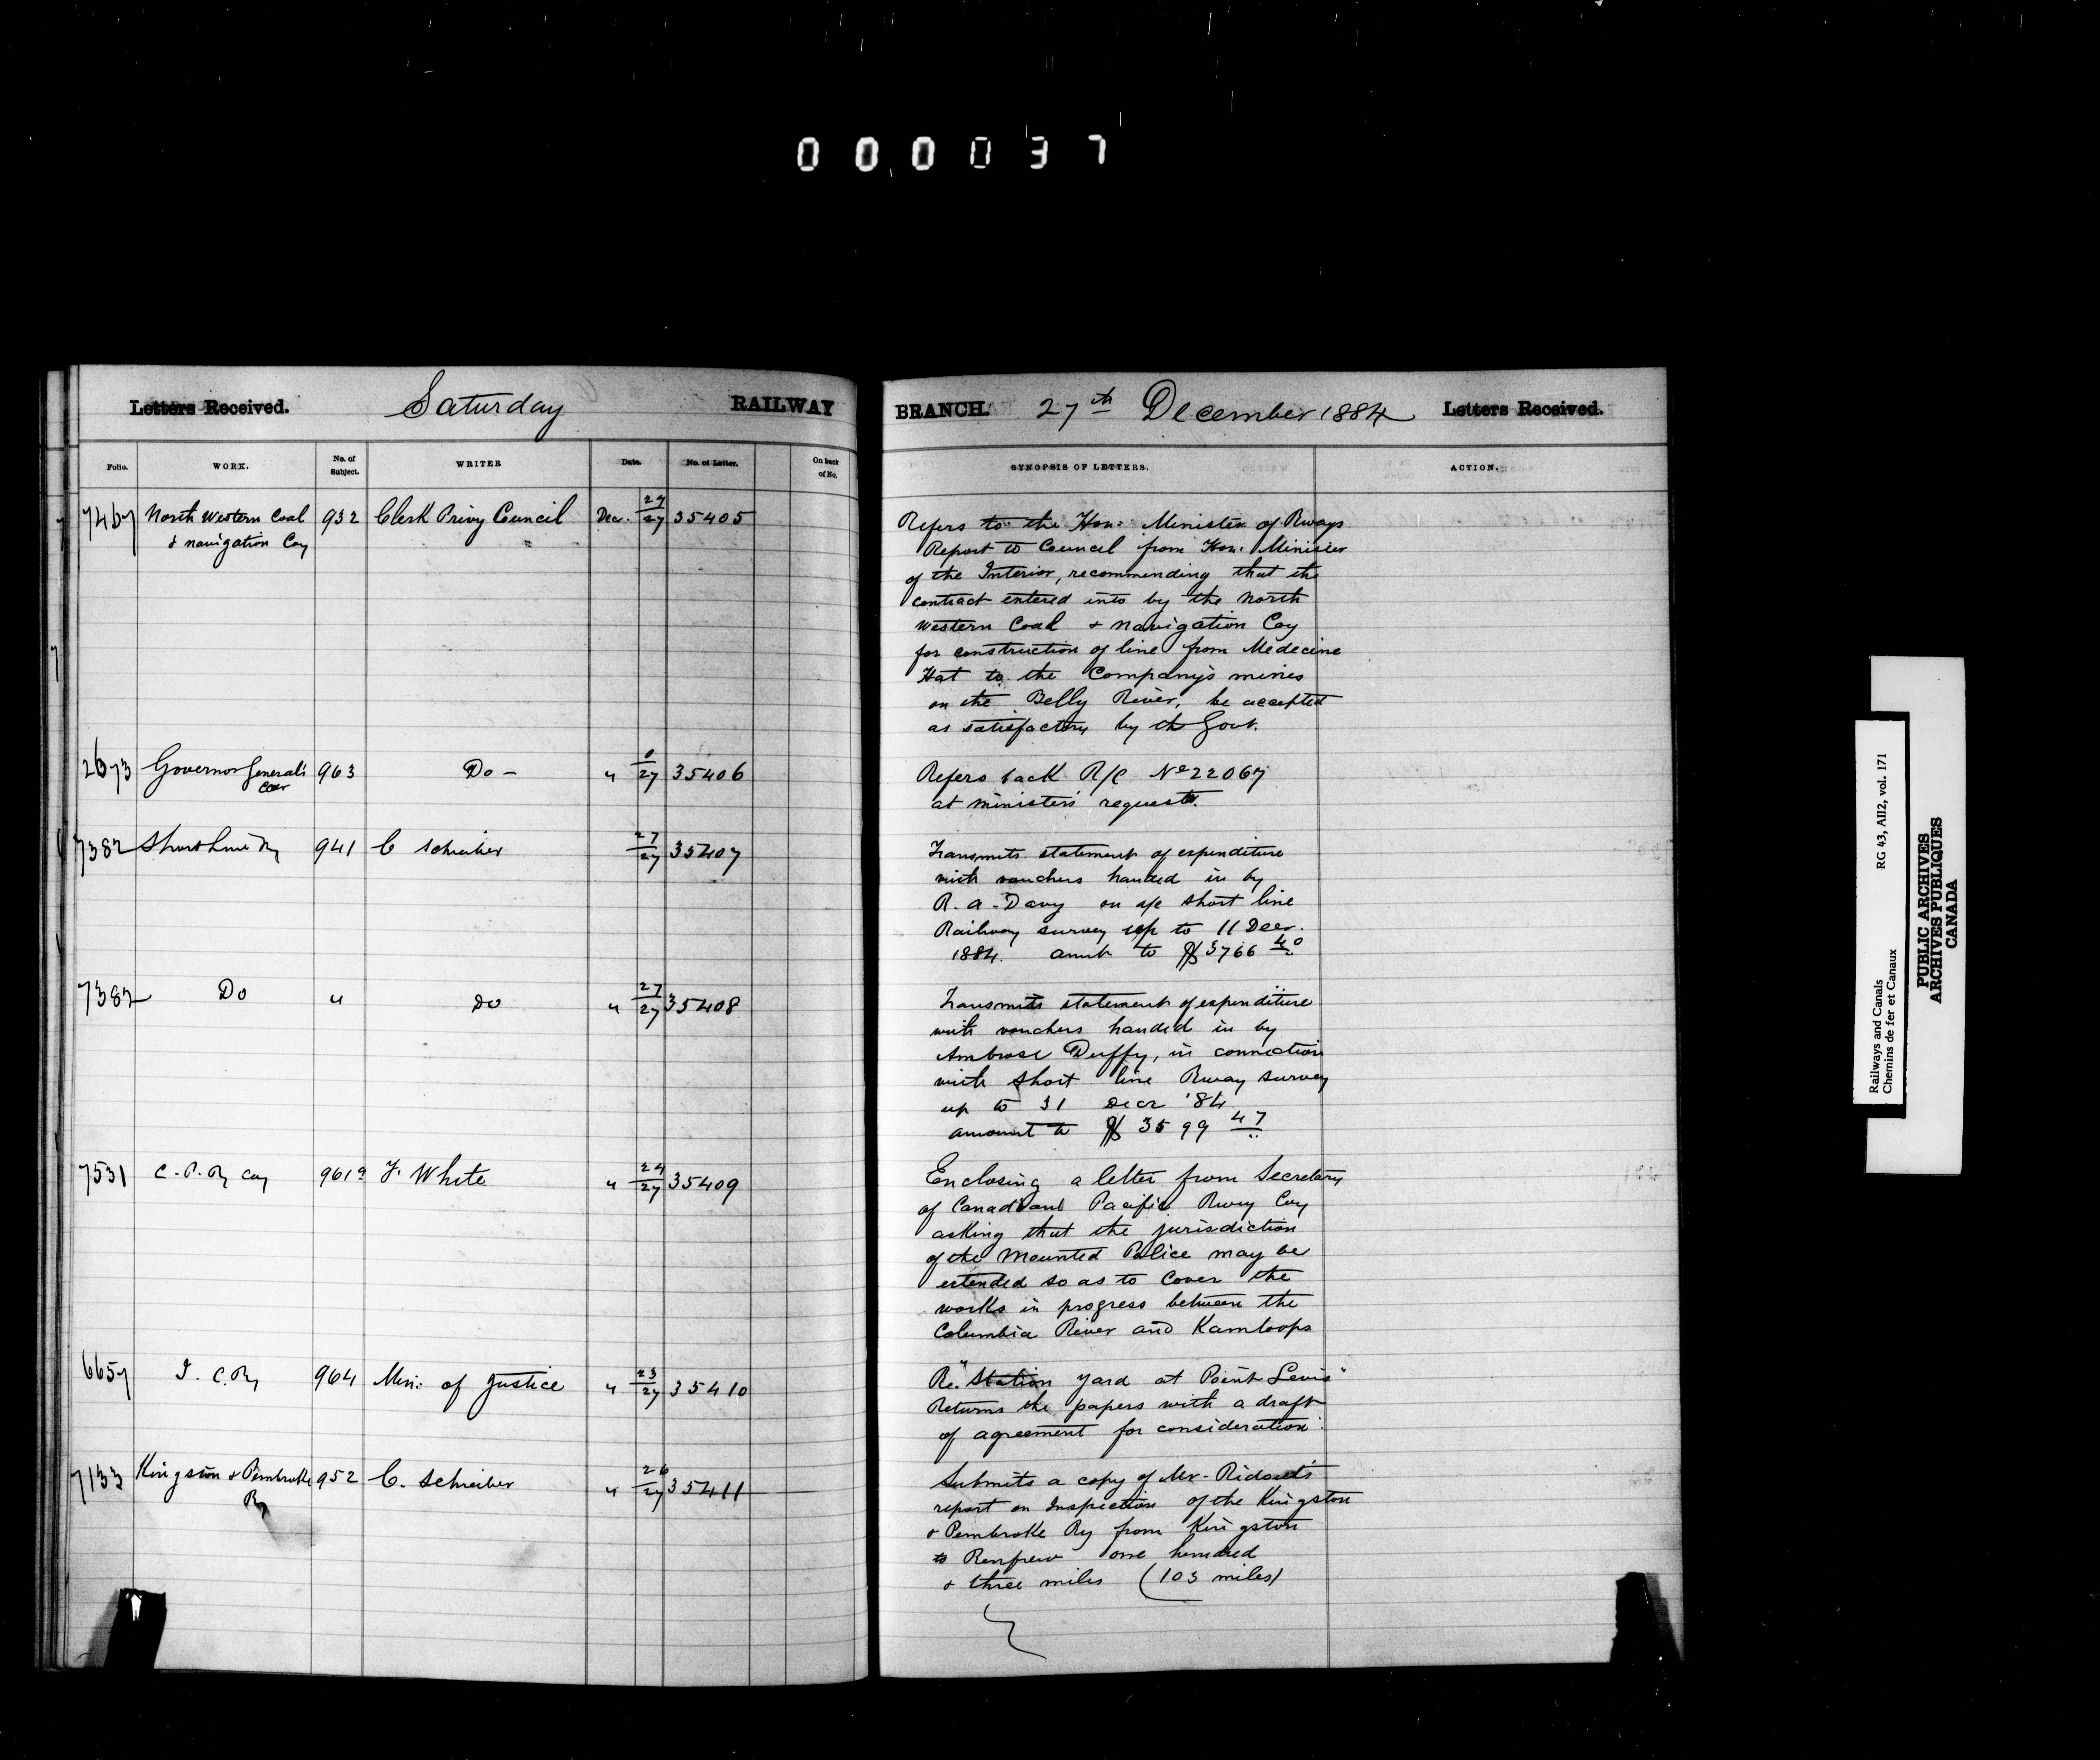 000037
Letters Received. Saturday RAILWAY
BRANCH. 27th December 1884 Letters Received.
Folio. WORK. No. of Subject. WRITER Date. No. of Letter. On back of No.
SYNOPSIS OF LETTERS. ACTION.
7467 North Western Coal 932 Clerk Privy Council Dec. 27/27 35405
& navigation Coy
Refers to the Hon. Minister of Rways
Report to Council from Hon. Minister
of the Interior, recommending that the
contract entered into by the North
Western Coal & navigation Coy
for construction of line from Medecine
Hat to the Company's mines
on the Belly River, be accepted
as satisfactory by th Govt.
2673 Governor General's 963 Do - " 0/27 35406
Car
Refers back R/C No 22067
at Ministers request.
7382 Short Line Ry 941 C Schreiber 27/27 35407
Transmits statement of expenditure
with vouchers handed in by
R. A. Davy on a/c short line
Railway survey up to 11 Decr.
1884. amt to $3766 40
7382 Do " Do " 27/27 35408
Transmits statement of expenditure
with vouchers handed in by
Ambrose Duffy, in connection
with short line Rway survey
up to 31 Decr '84
amount to $ 3599 47
7531 C. P. Ry Coy 961a F. White " 24/27 35409
Enclosing a letter from Secretary
of Canadian Pacific Rwy Coy
asking that the jurisdiction
of the Mounted Police may be
extended so as to cover the
works in progress between the
Columbia River and Kamloops
6657 I. C. Ry 964 Min: of Justice " 23/27 35410
Re. "Station yard at Point Levis"
Returns the papers with a draft
of agreement for consideration.
7133 Kingston & Pembroke 952 C. Schreiber " 26/27 35411
Ry
Submits a copy of Mr. Ridout's
report on Inspection of the Kingston
& Pembroke Ry from Kingston
to Renfrew one hundred
& three miles (103 miles)
Railways and Canals RG 43, AII2, vol. 171
Chemins de fer et Canaux
PUBLIC ARCHIVES
ARCHIVES PUBLIQUES
CANADA